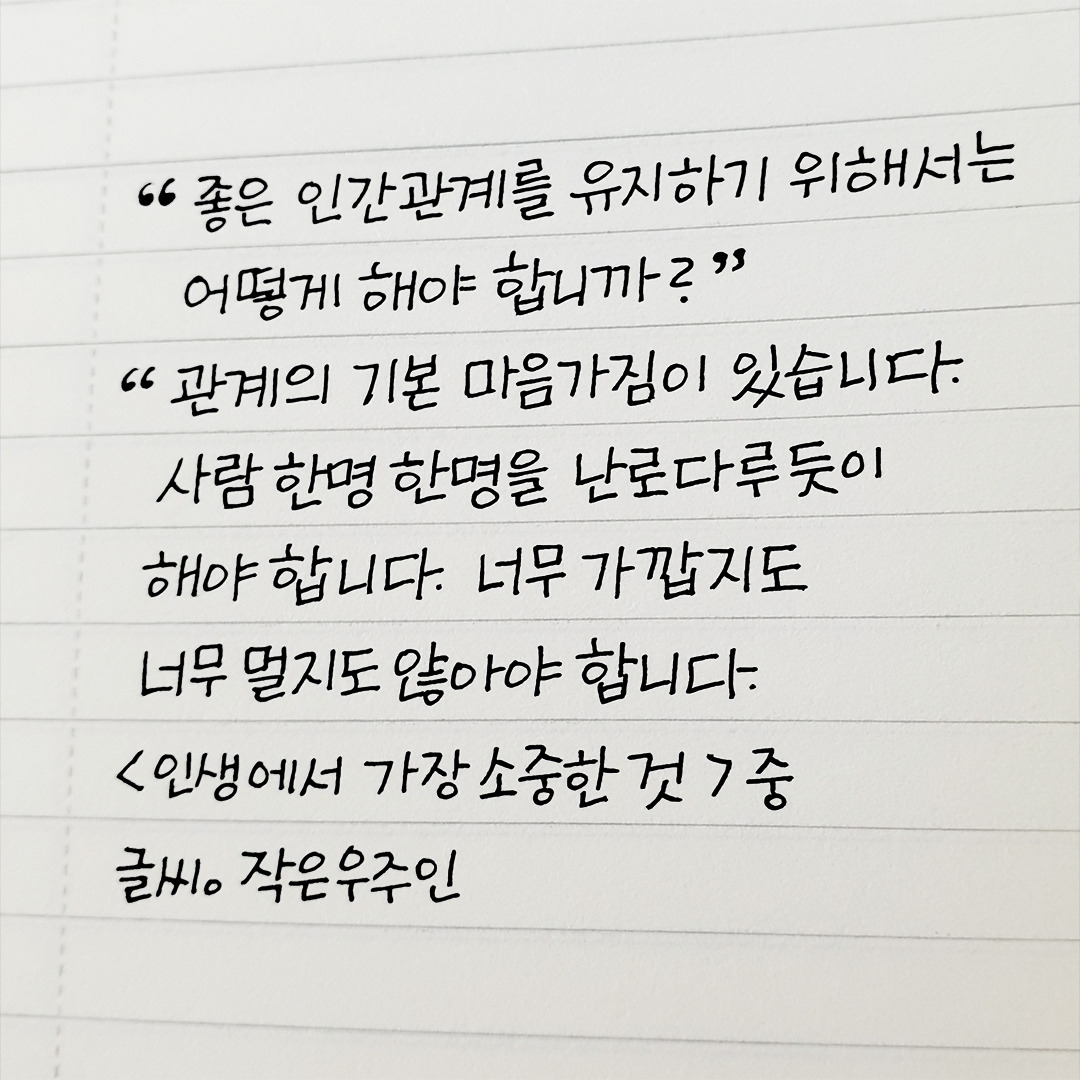 “ 좋은 인간관계를 유지하기 위해서는
어떻게 해야 합니까? ”
“ 관계의 기본 마음가짐이 있습니다.
사람 한명 한명을 난로다루듯이
해야 합니다. 너무 가깝지도
너무 멀지도 않아야 합니다.
<인생에서 가장 소중한 것 > 중
글씨。 작은우주인